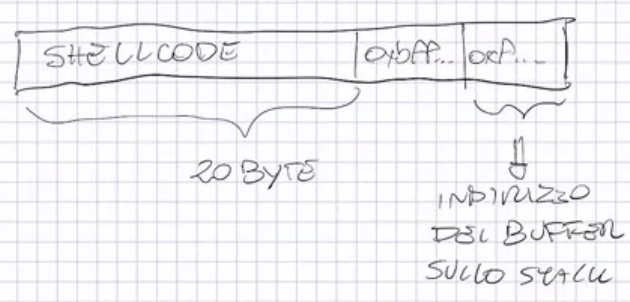 SHELLCODE 0xbff... 0xf...
20 BYTE
INDIRIZZO
DEL BUFFER
SULLO STACK